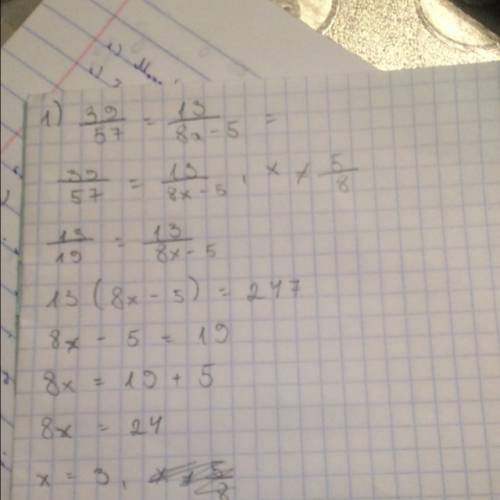 1) 39/57 = 13/8x - 5 =
39/57 = 13/8x - 5, x ≠ 5/8
13/19 = 13/8x - 5
13 (8x - 5) = 247
8x - 5 = 19
8x = 19 + 5
8x = 24
x = 3,